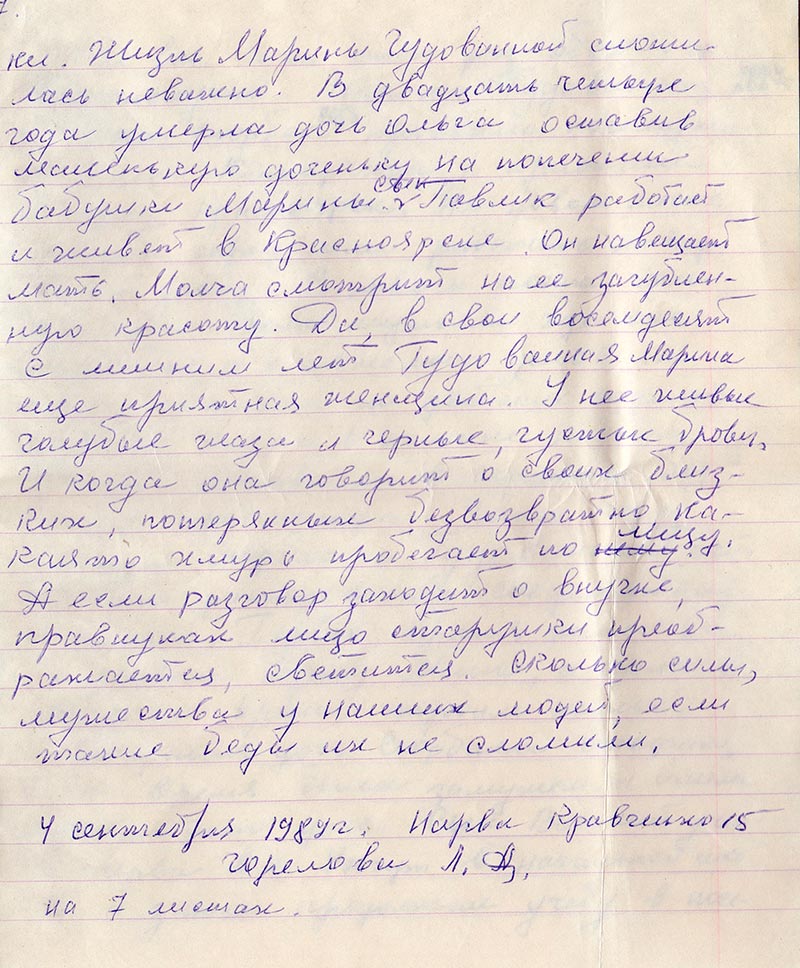 7.
ки. Жизнь Марины Гудованной сложи-
лась неважно. В двадцать четыре
года умерла дочь Ольга оставив
маленькую доченьку на попечении
бабушки Марины. сын Павлик работает
и живет в Красноярске. Он навещает
мать. Молча смотрит на ее загублен-
ную красоту. Да, в свои восемдесят
с лишним лет Гудованная Марина
еще приятная женщина. У нее живые
голубые глаза и черные, густые брови.
И когда она говорит о своих близ-
ких, потерянных безвозвратно ка-
каято хмурь пробегает по лицу.
А если разговор заходит о внучке,
правнуках лицо старушки преоб-
ражается, светится. Сколько силы,
мужества у наших людей, если
такие беды их не сломили.
4 сентября 1989г. Нарва Кравченко 15
Горелова Л. Д.
на 7 листах.